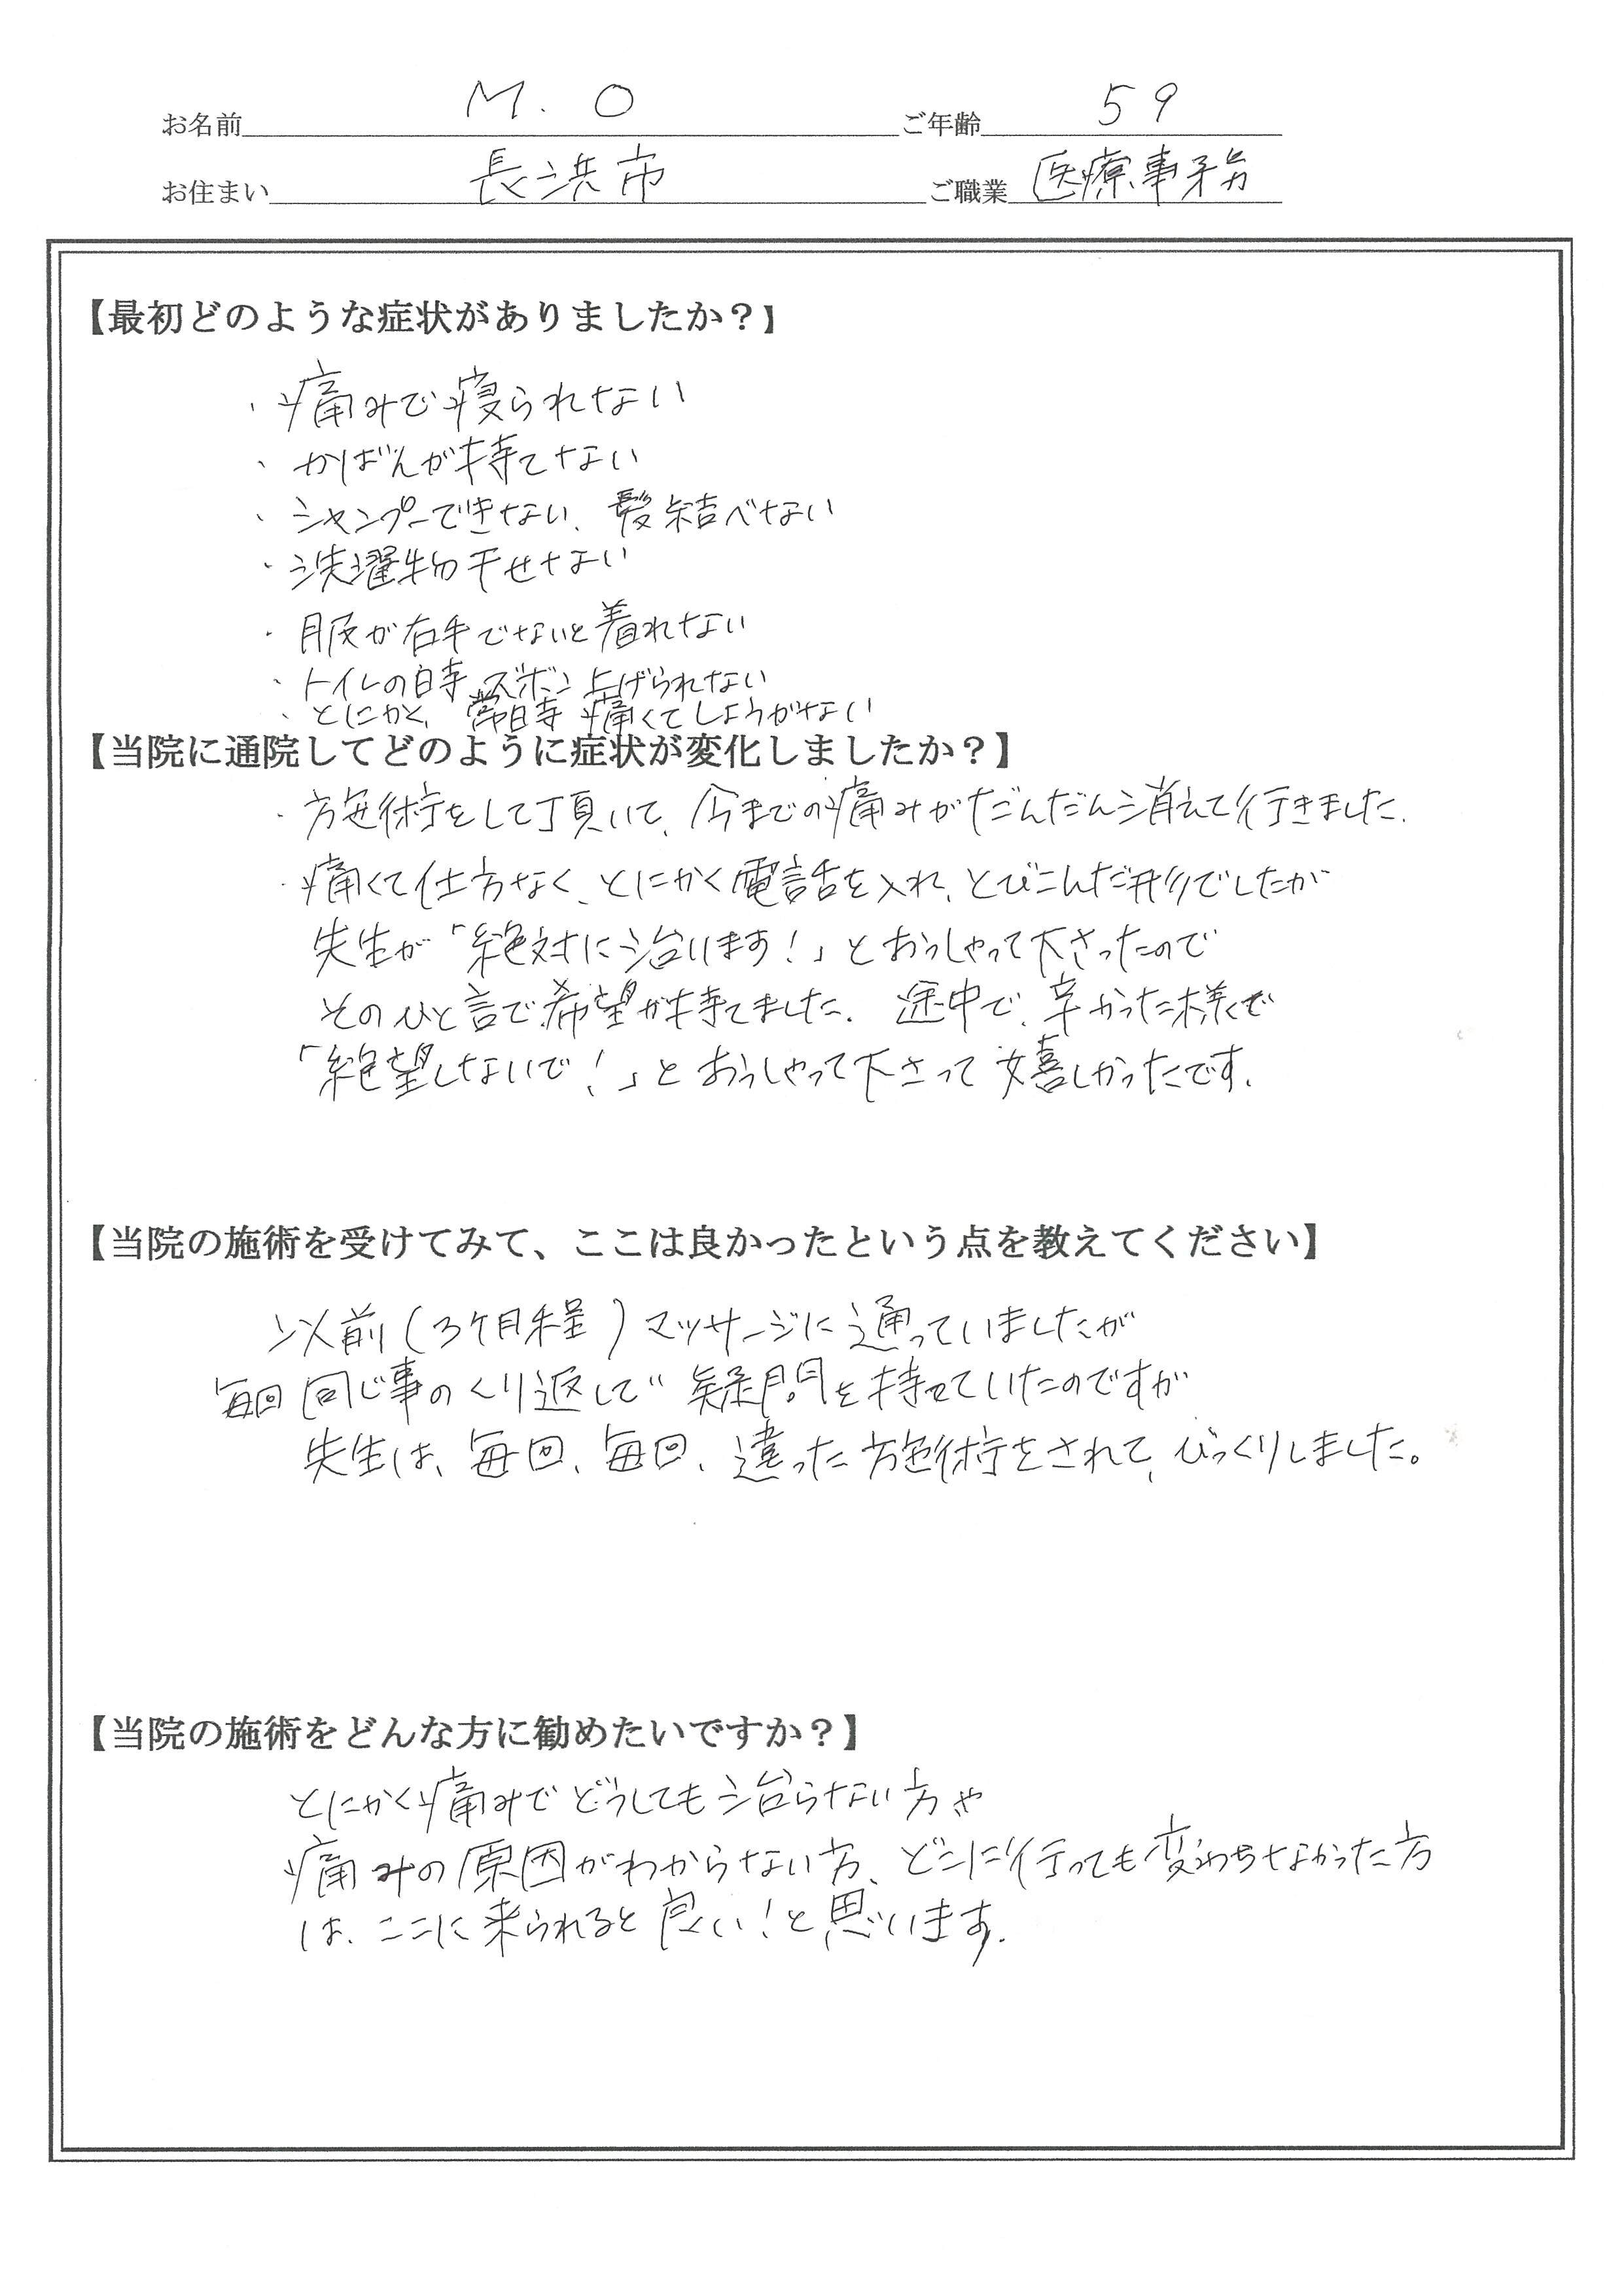 お名前 M. O ご年齢 59
お住まい 長浜市 ご職業 医療事務
【最初どのような症状がありましたか？】
・痛みで寝られない
・かばんが持てない
・シャンプーできない、髪結べない
・洗濯物干せない
・服が右手でないと着れない
・トイレの時ズボン上げられない
・とにかく、常時痛くてしょうがない
【当院に通院してどのように症状が変化しましたか？】
・施術をして頂いて、今までの痛みがだんだん消えて行きました.
・痛くて仕方なく、とにかく電話を入れ、とびこんだ形でしたが
先生が「絶対に治ります！」とおっしゃって下さったので
そのひと言で希望が持てました. 途中で、辛かった様で
「絶望しないで！」とおっしゃって下さって嬉しかったです.
【当院の施術を受けてみて、ここは良かったという点を教えてください】
以前(3ケ月程)マッサージに通っていましたが
毎回同じ事のくり返しで疑問を持っていたのですが
先生は、毎回、毎回、違った施術をされて、びっくりしました。
【当院の施術をどんな方に勧めたいですか？】
とにかく痛みでどうしても治らない方や
痛みの原因がわからない方、どこに行っても変わらなかった方
は、ここに来られると良い！と思います.